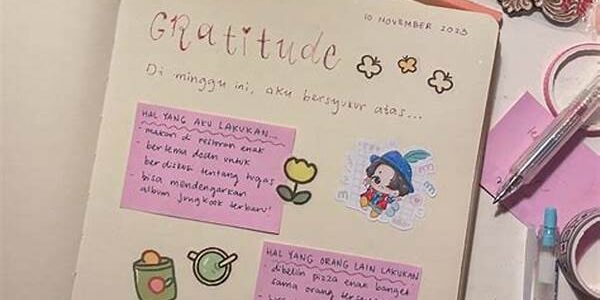 10 NOVEMBER 2023
GRatitude
Di minggu ini, aku bersyukur atas...
HAL YANG AKU LAKUKAN...
- makan di restoran enak
- bertemu dosen untuk
berdiskusi tentang tugas
- bisa mendengarkan
album Jungkook terbaru!
HAL YANG ORANG LAIN LAKUKAN
- dibeliin pizza enak banget
sama orang